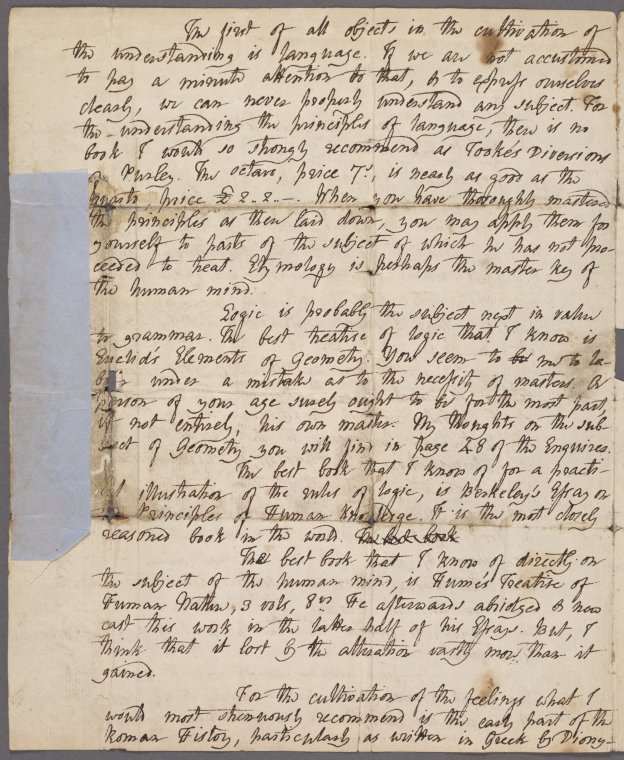 The first of all objects in the cultivation of
the understanding is language. If we are not accustomed
to pay a minute attention to that, & to express ourselves
clearly, we can never properly understand any subject. For
the understanding the principles of language, there is no
book I would so strongly recommend as Tooke's Diversions
Purley. The octavo, price 7s. is nearly as good as the
quarto, price £2..2..—. When you have thoroughly mastered
the principles as then laid down, you may apply them for
yourself to parts of the subject of which he has not pro-
ceeded to treat. Etymology is perhaps the master key of
the human mind.
Logic is probably the subject next in value
to grammar. The best treatise of logic that I know is
Euclid's Elements of Geometry. You seem to me to la-
bour under a mistake as to the necessity of masters. A
person of your age surely ought to be for the most part,
if not entirely, his own master. My thoughts on the sub-
ject of Geometry you will find in page 48 of the Enquirer.
The best book that I know of for a practi-
cal illustration of the rules of logic, is Berkeley's Essay on
Principles of Human Knowledge. It is the most closely
reasoned book in the world. The best book
The best book that I know of directly on
the subject of the human mind, is Hume's Treatise of
Human Nature, 3 vols, 8vo He afterwards abridged & new
cast this work in the latter half of his Essays. But, I
think that it lost by the alteration vastly more than it
gained.
For the cultivation of the feelings what I
would most strenuously recommend is the early part of the
Roman History, particularly as written in Greek by Diony-